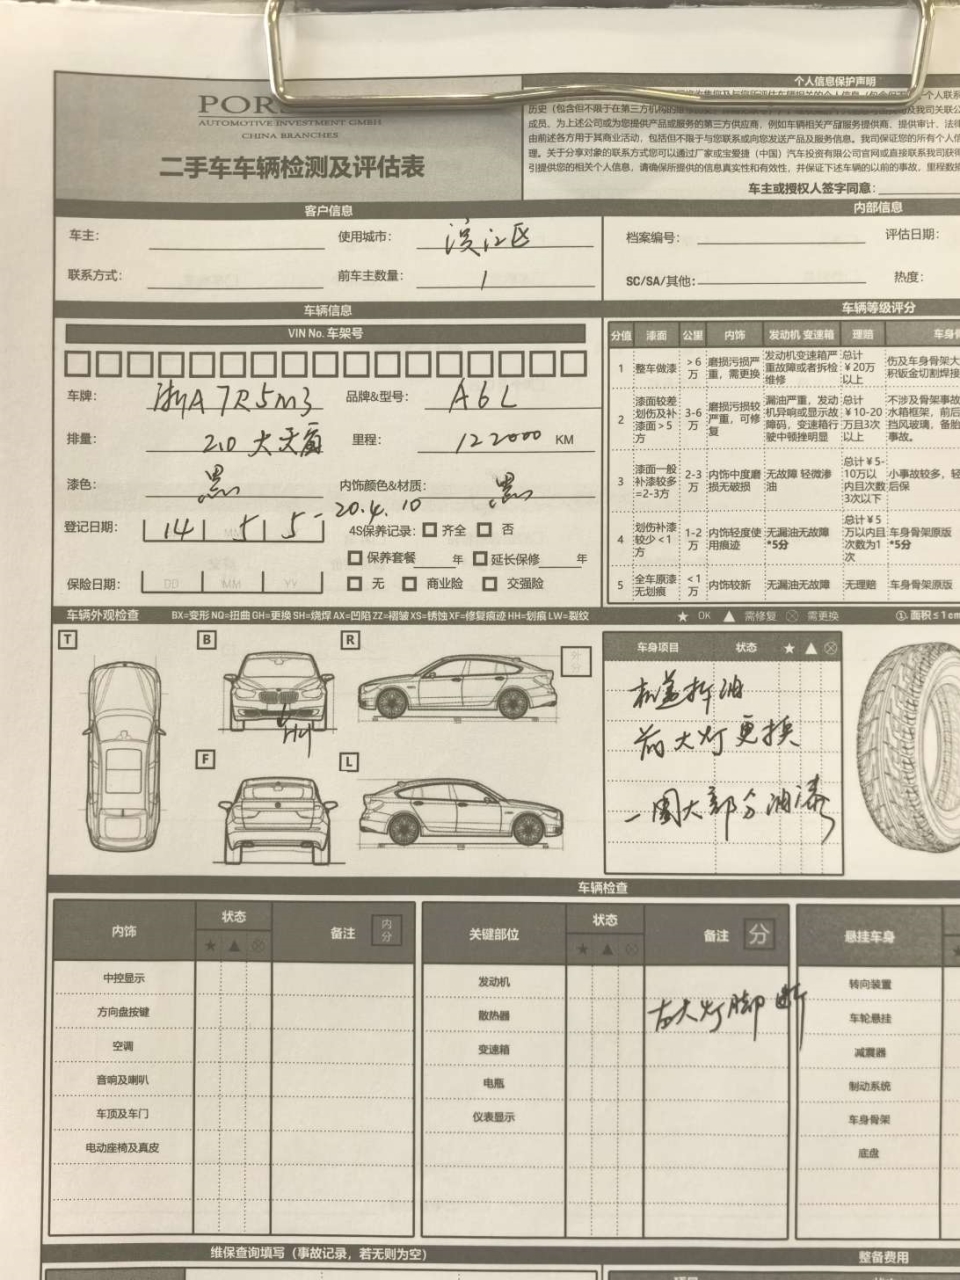 POR
AUTOMOTIVE INVESTMENT GMBH
CHINA BRANCHES
二手车车辆检测及评估表
个人信息保护声明
历史（包含但不限于在第三方机构的
成员。为上述公司或为您提供产品或服务的第三方供应商，例如车辆相关产品服务提供商、提供审计、法律
由前述各方用于其商业活动，包括但不限于与您联系或向您发送产品及服务信息。我司保证您的所有个人信
理。关于分享对象的联系方式您可以通过厂家或宝爱捷（中国）汽车投资有限公司官网或直接联系我司获得
引提供您的相关个人信息，请确保所提供的信息真实性和有效性，并保证下述车辆的以前的事故，里程数据
车主或授权人签字同意：
客户信息 内部信息
车主： 使用城市： 滨江区 档案编号： 评估日期：
联系方式： 前车主数量： 1 SC/SA/其他： 热度：
车辆信息 车辆等级评分
VIN No. 车架号
车牌： 浙A 7R5M3 品牌&型号： A6L
排量： 2.0 大天窗 里程： 122000 KM
漆色： 黑 内饰颜色&材质： 黑
20.4.10
登记日期： 14 5 5 4S保养记录： 齐全 否
保养套餐 年 延长保修 年
保险日期： DD MM YY 无 商业险 交强险
分值 漆面 公里 内饰 发动机 变速箱 理赔 车身
1 整车做漆 >6万 磨损污损严重，需更换 发动机变速箱严重故障或者拆检维修 总计￥20万以上 伤及车身骨架大
积钣金切割焊接
2 漆面较差划伤及补漆面>5方 3-6万 磨损污损较严重，可修复 漏油严重，发动机异响或显示故障码，变速箱行驶中顿挫明显 总计￥10-20万且3次以上 不涉及骨架事故
水箱框架，前后
挡风玻璃，备胎
事故。
3 漆面一般补漆较多=2-3方 2-3万 内饰中度磨损无破损 无故障 轻微渗油 总计￥5-10万以内且次数3次以下 小事故较多，轻
后保
4 划伤补漆较少<1方 1-2万 内饰轻度使用痕迹 无漏油无故障*5分 总计￥5万以内且次数为1次 车身骨架原版*5分
5 全车原漆无划痕 <1万 内饰较新 无漏油无故障 无理赔 车身骨架原版
车辆外观检查 BX=变形 NQ=扭曲 GH=更换 SH=烧焊 AX=凹陷 ZZ=褶皱 XS=锈蚀 XF=修复痕迹 HH=划痕 LW=裂纹 ★ OK ▲ 需修复 需更换 ①. 面积≤1cm
T B R
HH
F L
车身项目 状态 ★ ▲
机盖拆油
前大灯更换
一周大部分油漆
车辆检查
内饰 状态 备注 内分
★ ▲
中控显示
方向盘按键
空调
音响及喇叭
车顶及车门
电动座椅及真皮
关键部位 状态 备注 分
★ ▲
发动机
散热器 右大灯脚断
变速箱
电瓶
仪表显示
悬挂车身
转向装置
车轮悬挂
减震器
制动系统
车身骨架
底盘
维保查询填写（事故记录，若无则为空） 整备费用
项目